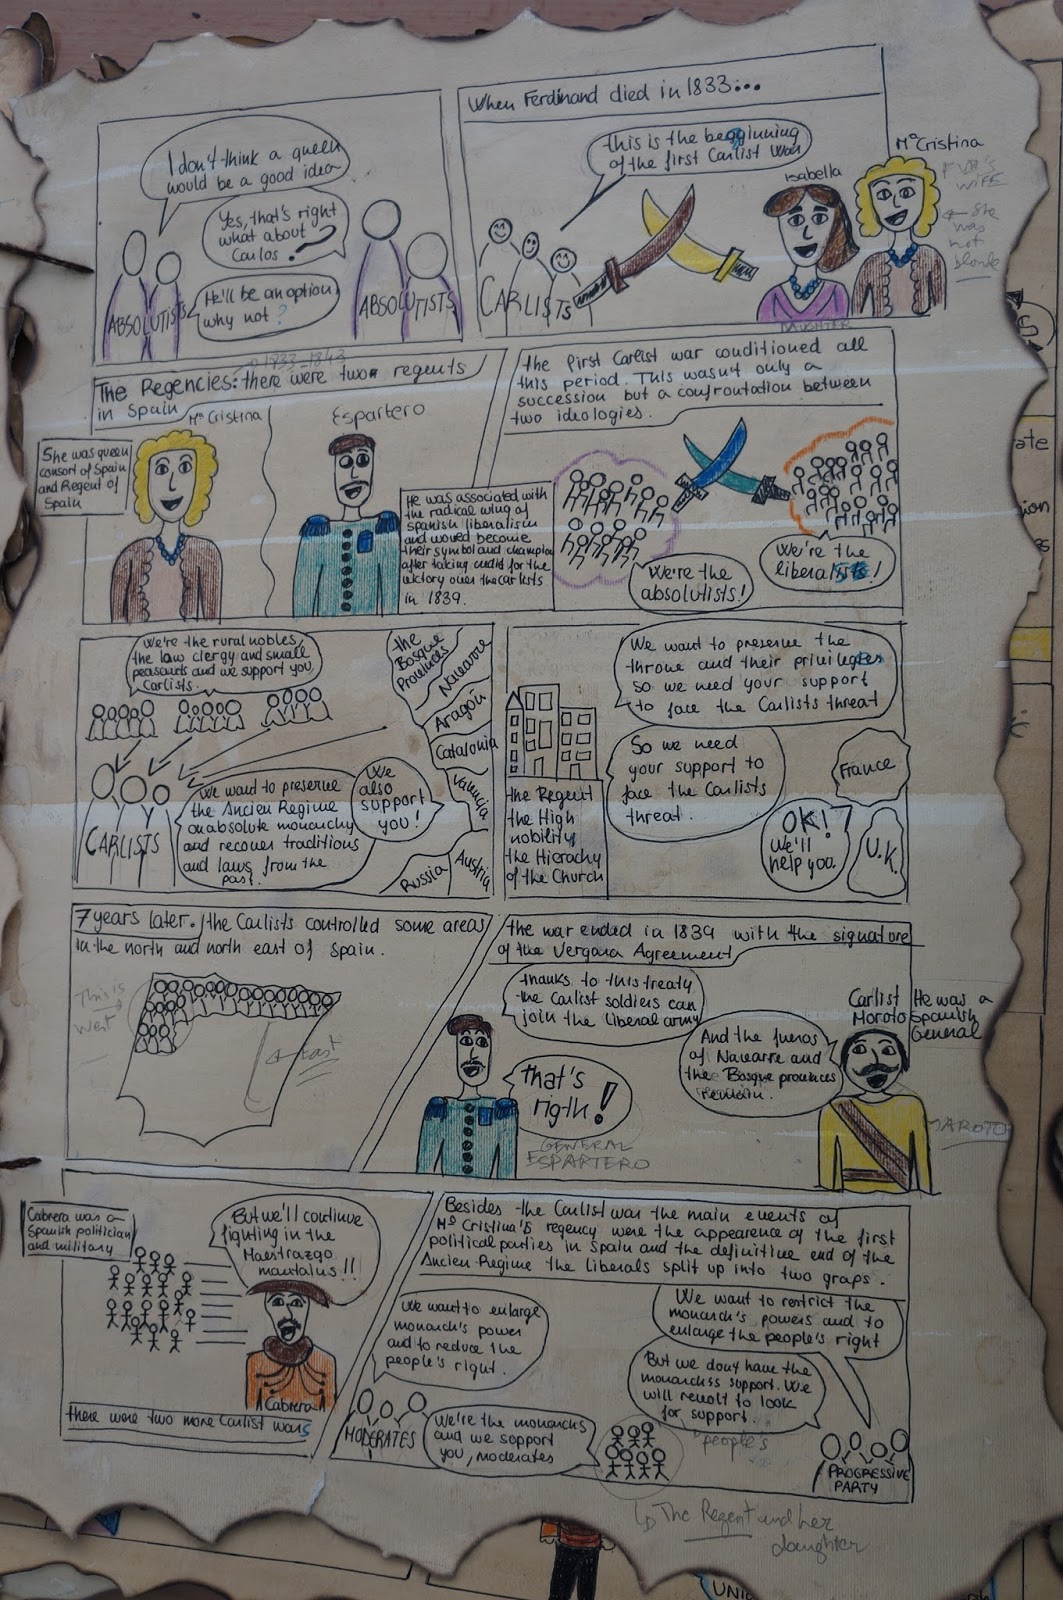 I don't think a queen
would be a good idea
Yes, that's right
what about
Carlos?
He'll be an option,
why not?
ABSOLUTISTS
ABSOLUTISTS
When Ferdinand died in 1833...
This is the begginning
of the first Carlist War
CARLISTS
Isabella
Mª Cristina
FVII'S
WIFE
← She
was
not
blonde
DAUGHTER
1833-1843
The Regencies: there were two regents
in Spain
Mª Cristina
Espartero
She was queen
consort of Spain
and Regent of
Spain
He was associated with
the radical wing of
Spanish liberalism
and would become
their symbol and champion
after taking credit for the
victory over the carlists
in 1839.
the First Carlist war conditioned all
this period. This wasn't only a
succession but a confrontation between
two ideologies.
We're the
absolutists!
We're the
liberalists!
We're the rural nobles,
the law clergy and small
peasants and we support you
Carlists.
the
Basque
Provinces
Navarre
Aragón
Catalonia
Valencia
Austria
Russia
We
also
support
you!
We want to preserve
the Ancien Regime
an absolute monarchy
and recover traditions
and laws from the
past.
CARLISTS
We want to preserve the
throne and their privileges
so we need your support
to face the Carlists threat
So we need
your support to
face the Carlists
threat.
the Regent
the High
nobility
the Hierachy
of the Church
France
OK!
We'll
help you.
U.K.
7 years later. the Carlists controlled some areas
in the north and north east of Spain.
This is
West
← East
the war ended in 1839 with the signature
of the Vergara Agreement
thanks to this treaty
the Carlist soldiers can
join the liberal army
That's
rigth!
GENERAL
ESPARTERO
And the fueros
of Navarre and
the Basque provinces
remain.
Carlist
Moroto
He was a
Spanish
General
MAROTO
Cabrera was a
Spanish politician
and military
But we'll continue
fighting in the
Maestrazgo
mountains!!!
Cabrera
there were two more Carlist wars
Besides the Carlist war the main events of
Mª Cristina's regency were the appearence of the first
political parties in Spain and the definitive end of the
Ancien Regime the liberals split up into two graps.
We want to enlarge
monarch's power
and to reduce the
people's right.
MODERATES
We're the monarchs
and we support
you, moderates
We want to restrict the
monarch's powers and to
enlarge the people's right
But we don't have the
monarch's support. We
will revolt to look
for support.
people's
PROGRESSIVE
PARTY
↳ The Regent and her
daughter
ate
ion
UNI